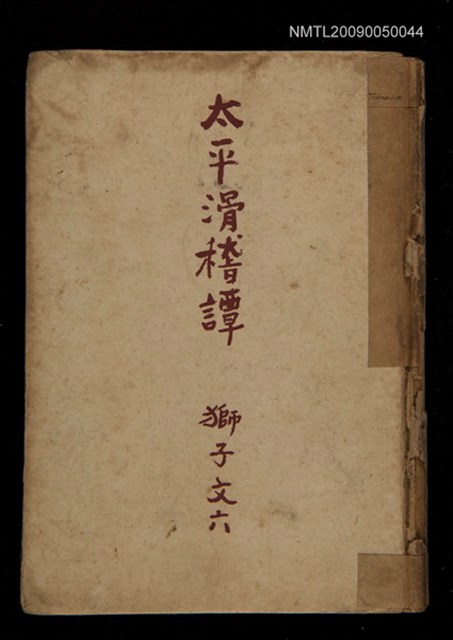 NMTL20090050044
太平滑稽譚
獅子文六